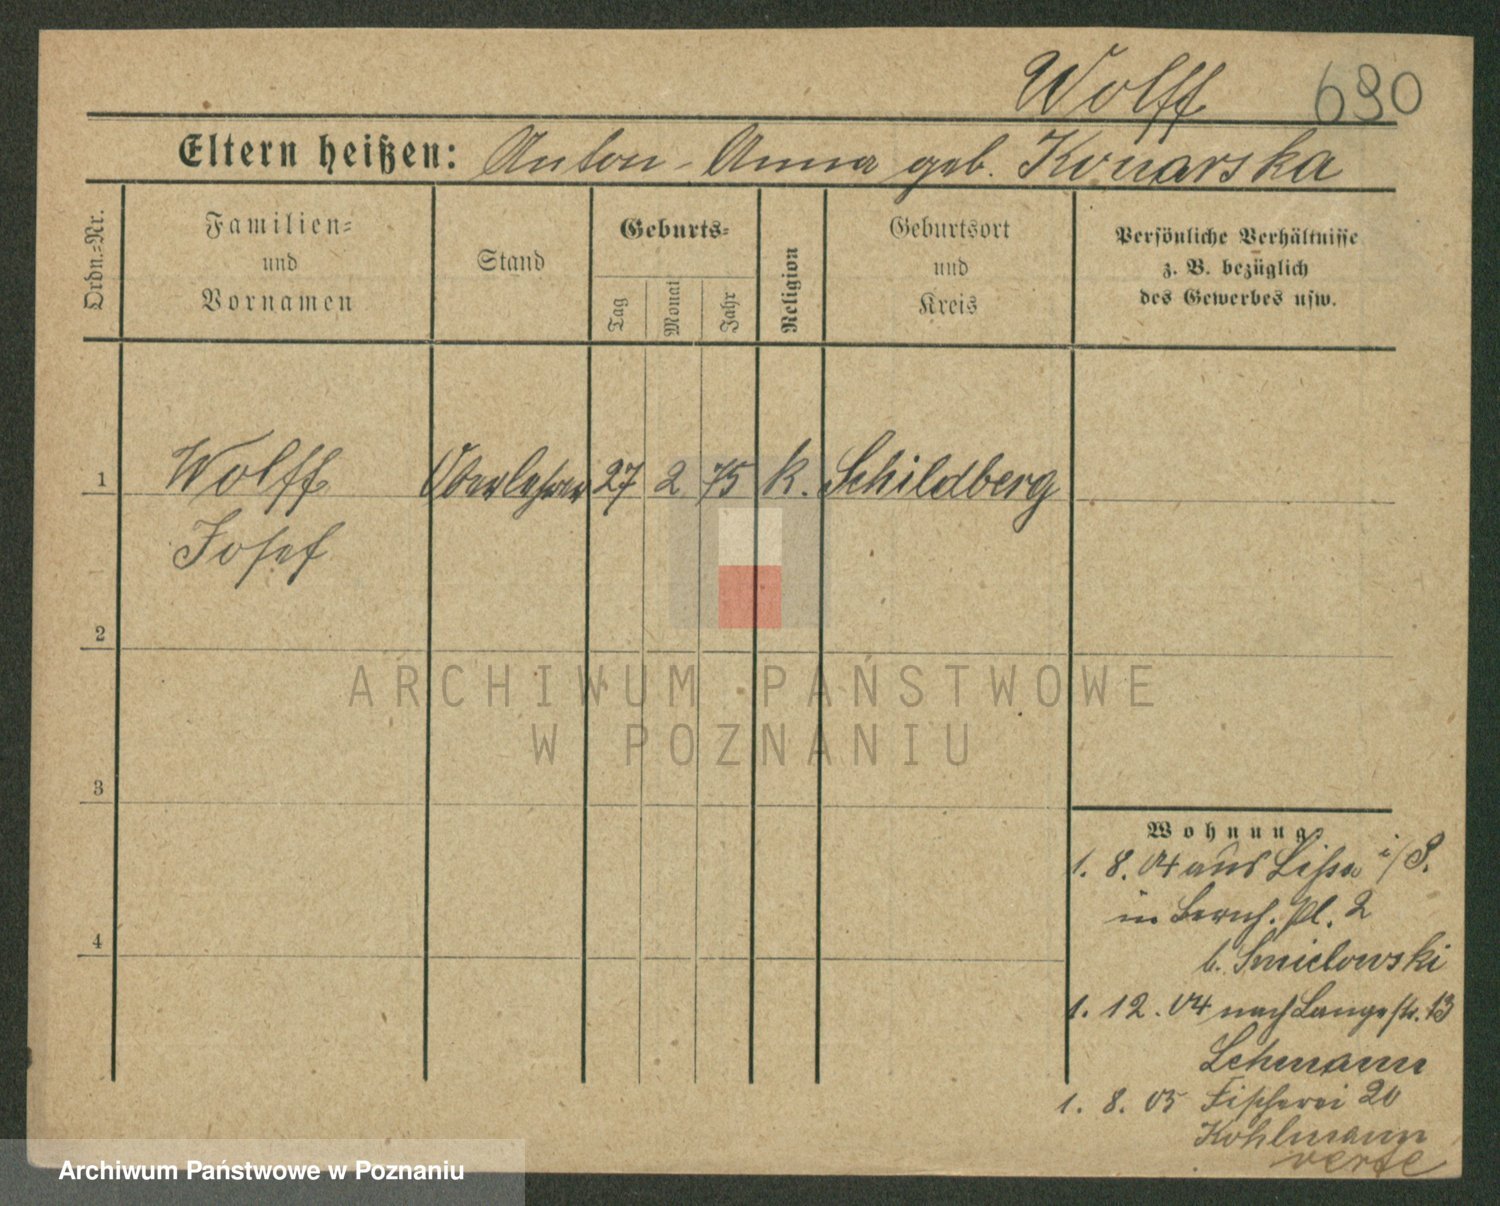 Wolff 690
Eltern heißen: Anton - Anna geb. Konarska
Ordn.=Nr.
Familien=
und
Vornamen
Stand
Geburts=
Tag
Monat
Jahr
Religion
Geburtsort
und
Kreis
Persönliche Verhältnisse
z. B. bezüglich
des Gewerbes usw.
1 Wolff Oberlehrer 27 2 75 k. Schildberg
Josef
2
3
4
ARCHIWUM PAŃSTWOWE
W POZNANIU
Wohnung
1. 8. 04 aus Lissa i/P.
in Bernh. Pl. 2
b. Smielowski
1. 12. 04 nach Langestr. 13
Lehmann
1. 8. 05 Fischerei 20
Kohlmann
verte
Archiwum Państwowe w Poznaniu